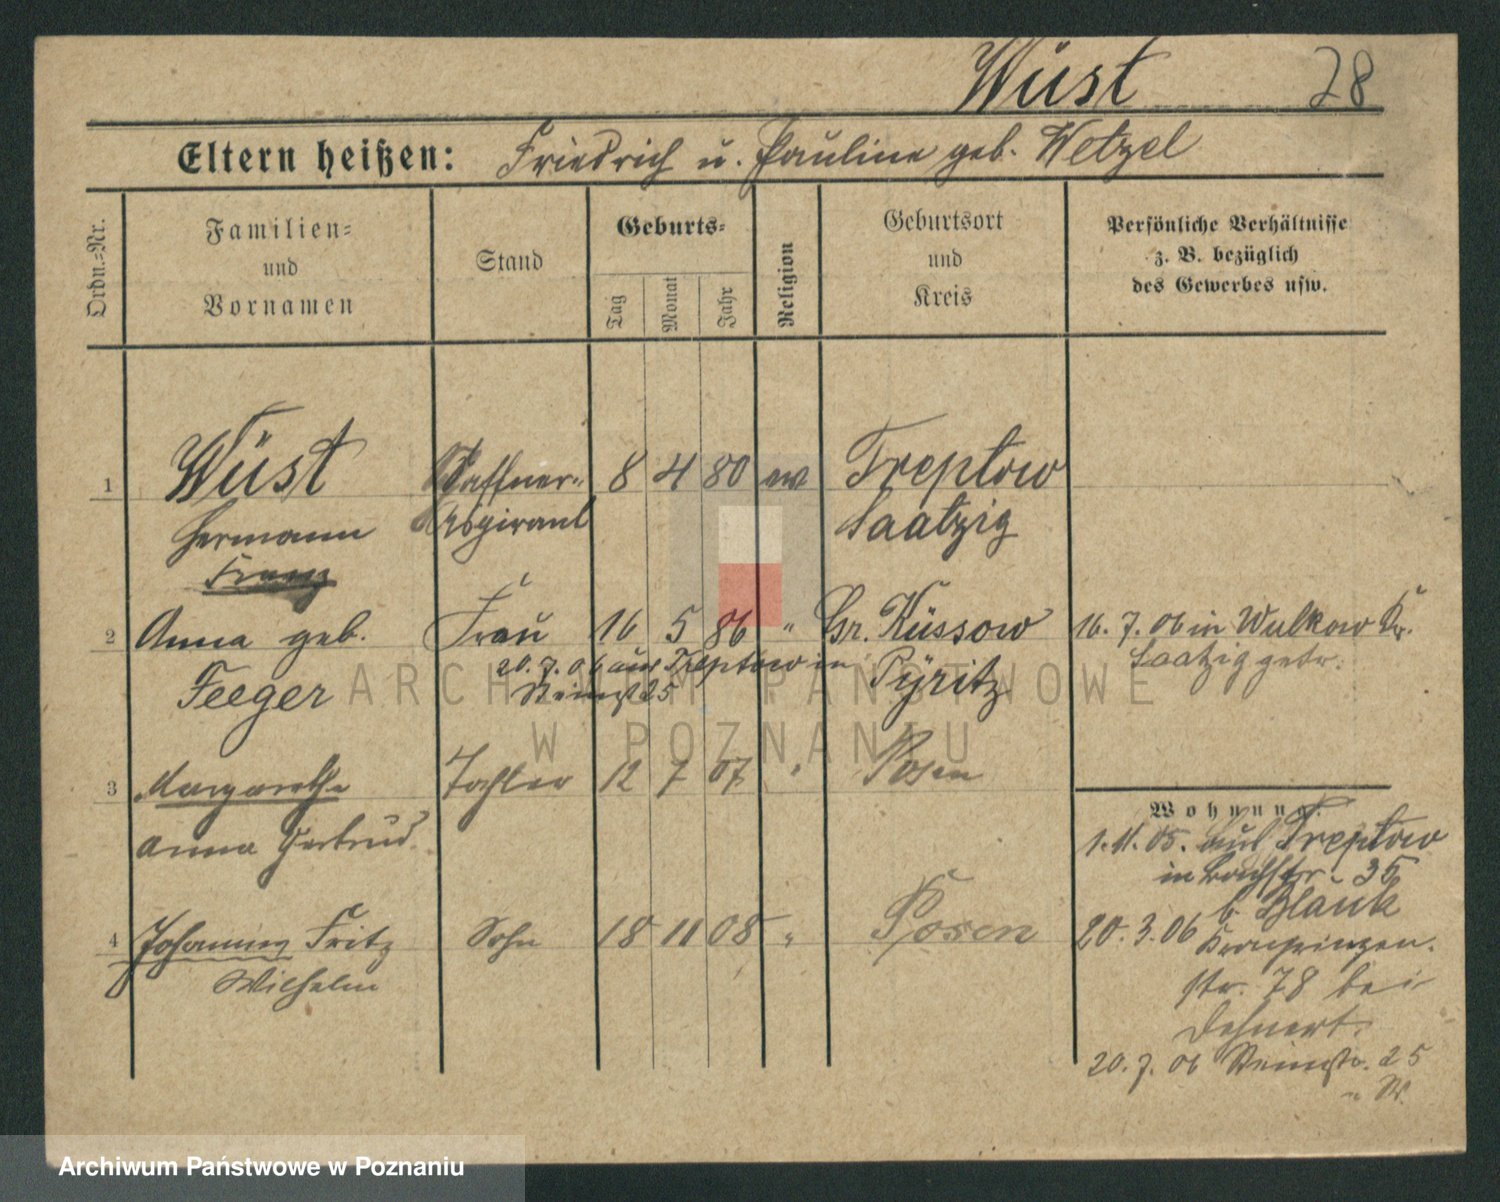 Wüst 28
Eltern heißen: Friedrich u. Pauline geb. Wetzel
Ordn.-Nr.
Familien-
und
Vornamen
Stand
Geburts-
Tag
Monat
Jahr
Religion
Geburtsort
und
Kreis
Persönliche Verhältnisse
z. B. bezüglich
des Gewerbes usw.
1 Wüst Schaffner- 8 4 80 ev Treptow
Hermann Aspirant Saatzig
Franz
2 Anna geb. Frau 16 5 86 " Gr. Küssow 16. 7. 06 in Wulkow Kr.
Feeger 20. 7. 06 aus Treptow in Pyritz Saatzig getr.
25
3 Margarethe Tochter 12 7 07 " Posen
Anna Gertrud
4 Johannes Fritz Sohn 18 11 08 " Posen
Wilhelm
Wohnung.
1. 11. 05. aus Treptow
in Bachstr. 35
b. Blank
20. 3. 06 Kronprinzen-
str. 78 bei
Dehnert.
20. 7. 06 25
ARCHIWUM PAŃSTWOWE
W POZNANIU
Archiwum Państwowe w Poznaniu